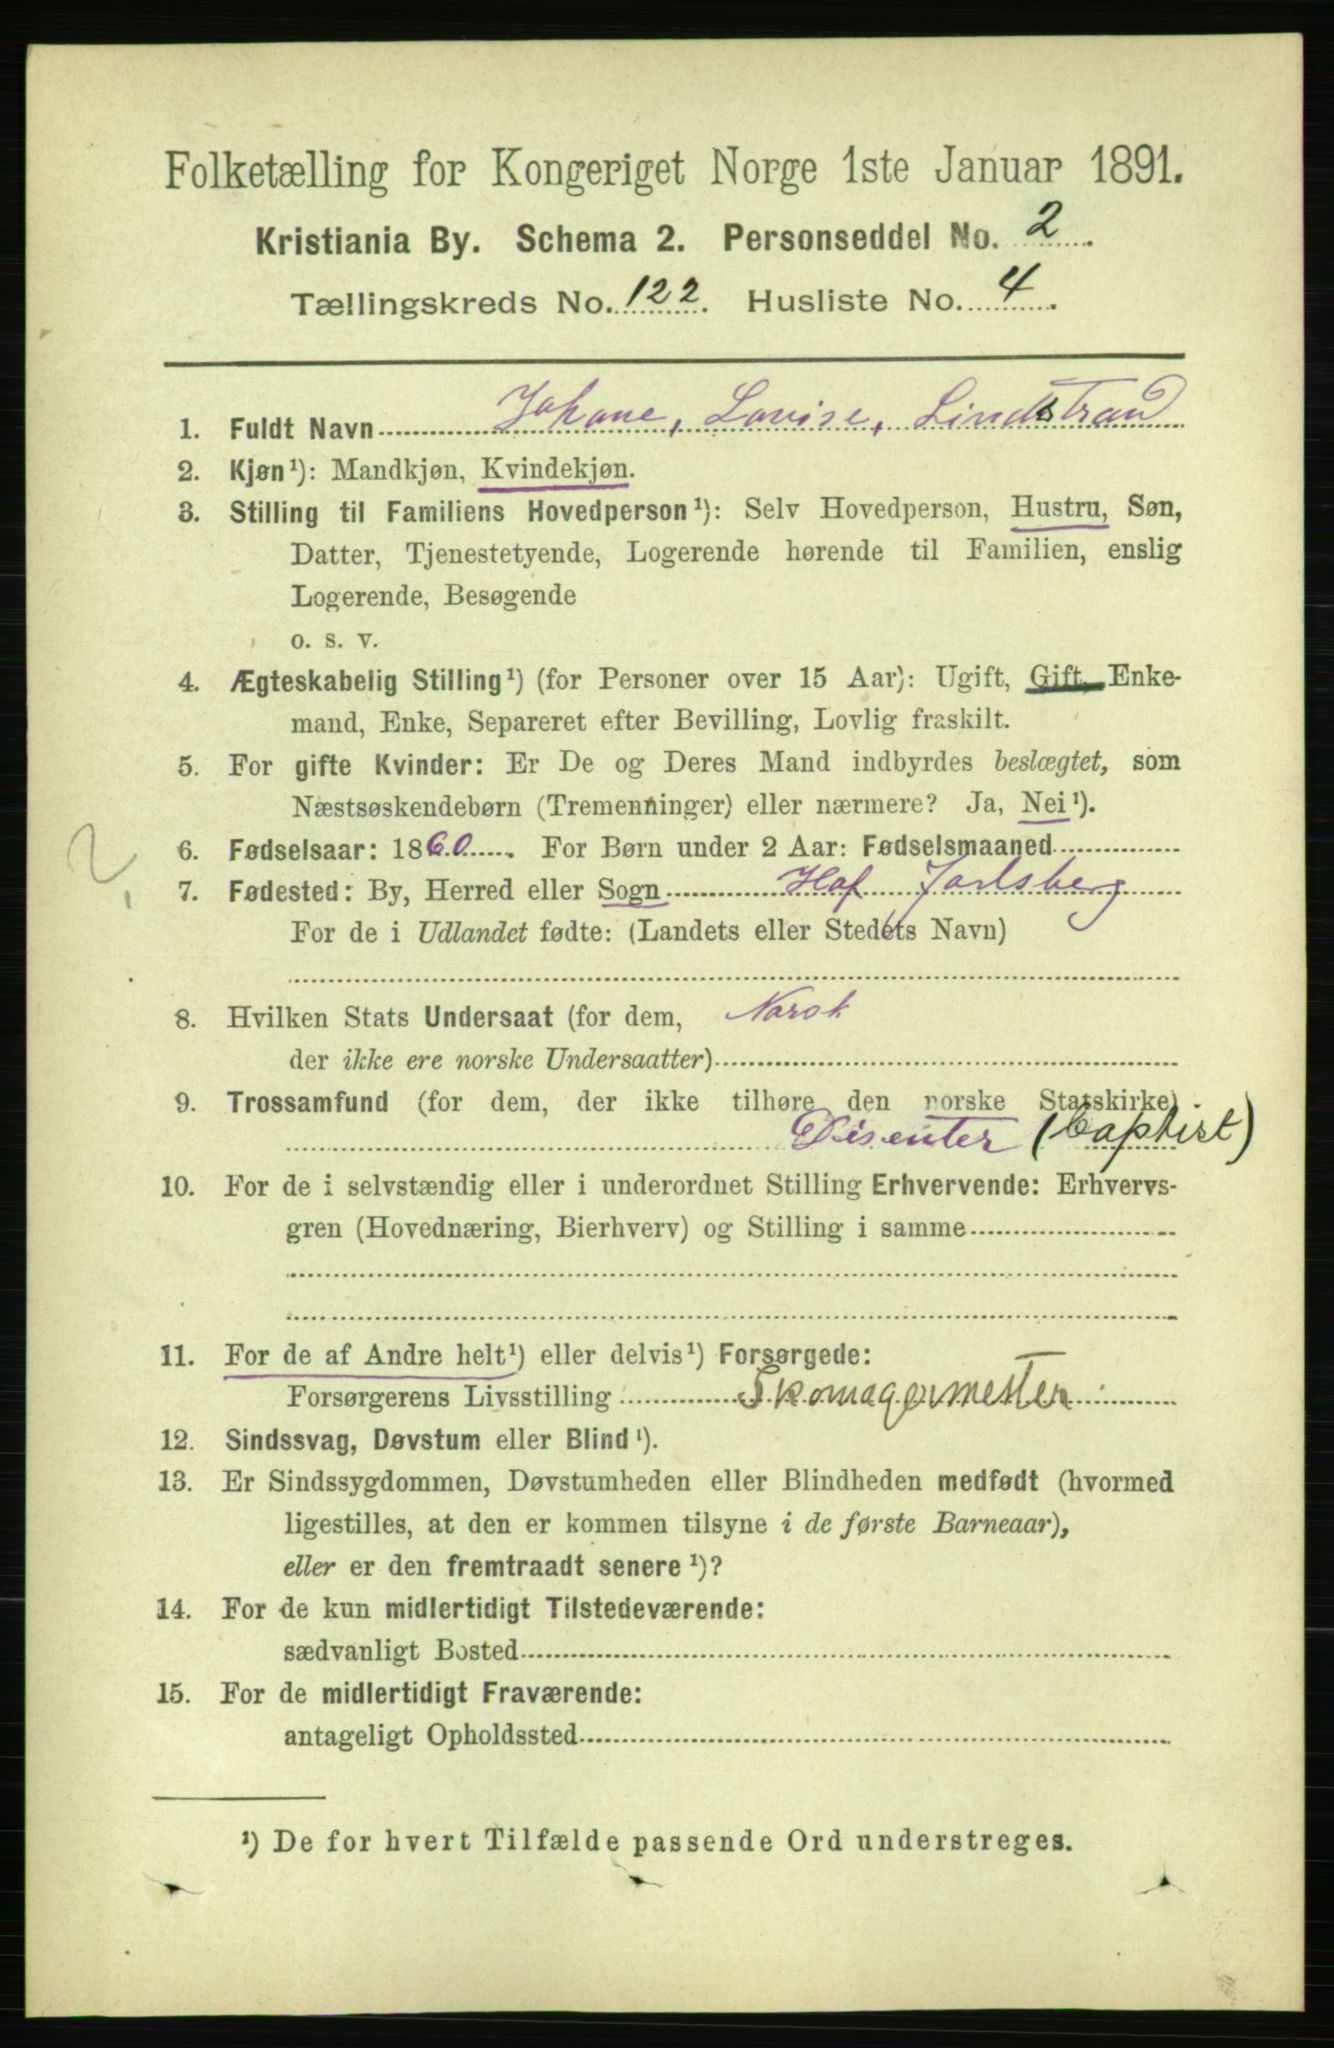 Folketælling for Kongeriget Norge 1ste Januar 1891.
Kristiania By. Schema 2. Personseddel No. 2.
Tællingskreds No. 122. Husliste No. 4.
1. Fuldt Navn Johane, Lovise, Lindstrand
2. Kjøn¹): Mandkjøn, Kvindekjøn.
3. Stilling til Familiens Hovedperson¹): Selv Hovedperson, Hustru, Søn,
Datter, Tjenestetyende, Logerende hørende til Familien, enslig
Logerende, Besøgende
o. s. v.
4. Ægteskabelig Stilling¹) (for Personer over 15 Aar): Ugift, Gift, Enke-
mand, Enke, Separeret efter Bevilling, Lovlig fraskilt.
5. For gifte Kvinder: Er De og Deres Mand indbyrdes beslægtet, som
Næstsøskendebørn (Tremenninger) eller nærmere? Ja, Nei¹).
2.
6. Fødselsaar: 1860. For Børn under 2 Aar: Fødselsmaaned
7. Fødested: By, Herred eller Sogn Hof Jarlsberg
For de i Udlandet fødte: (Landets eller Stedets Navn)
8. Hvilken Stats Undersaat (for dem, Norsk
der ikke ere norske Undersaatter)
9. Trossamfund (for dem, der ikke tilhøre den norske Statskirke)
Disenter (baptist)
10. For de i selvstændig eller i underordnet Stilling Erhvervende: Erhvervs-
gren (Hovednæring, Bierhverv) og Stilling i samme
11. For de af Andre helt¹) eller delvis¹) Forsørgede:
Forsørgerens Livsstilling Skomagermester
12. Sindssvag, Døvstum eller Blind¹).
13. Er Sindssygdommen, Døvstumheden eller Blindheden medfødt (hvormed
ligestilles, at den er kommen tilsyne i de første Barneaar),
eller er den fremtraadt senere¹)?
14. For de kun midlertidigt Tilstedeværende:
sædvanligt Bosted
15. For de midlertidigt Fraværende:
antageligt Opholdssted
¹) De for hvert Tilfælde passende Ord understreges.